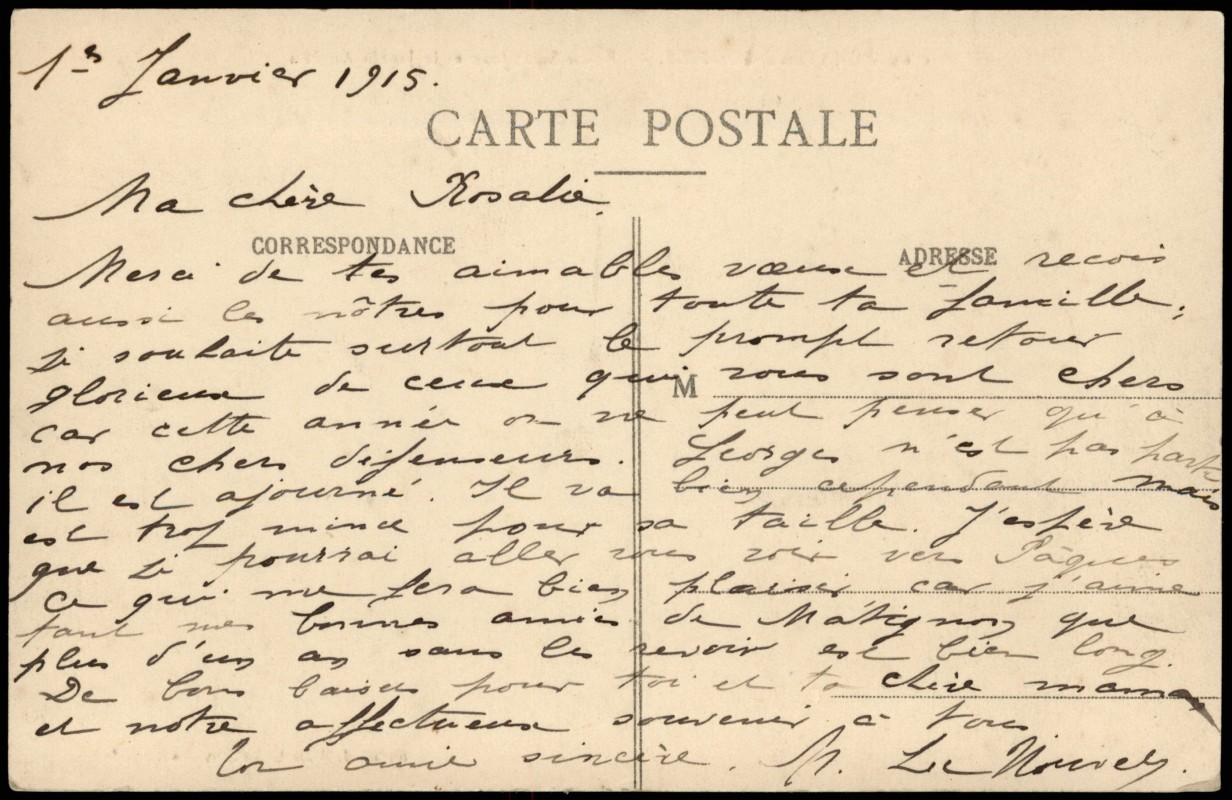 1er Janvier 1915.
CARTE POSTALE
Ma chère Rosalie
CORRESPONDANCE
ADRESSE
Merci de tes aimables vœux et recois
aussi les nôtres pour toute ta famille;
je souhaite surtout le prompt retour
glorieux de ceux qui vous sont chers
M
car cette année on ne peut penser qu'à
nos chers défenseurs. Georges n'est pas parti
il est ajourné. Il va bien cependant mais
est trop mince pour sa taille. J'espère
que je pourrai aller vous voir vers Pâques
ce qui me fera bien plaisir car j'aime
tant mes bonnes amies de Matignon que
plus d'un an sans les revoir est bien long.
De bons baisers pour toi et ta chère maman
et notre affectueux souvenir à tous
Ton amie sincère. M. Le